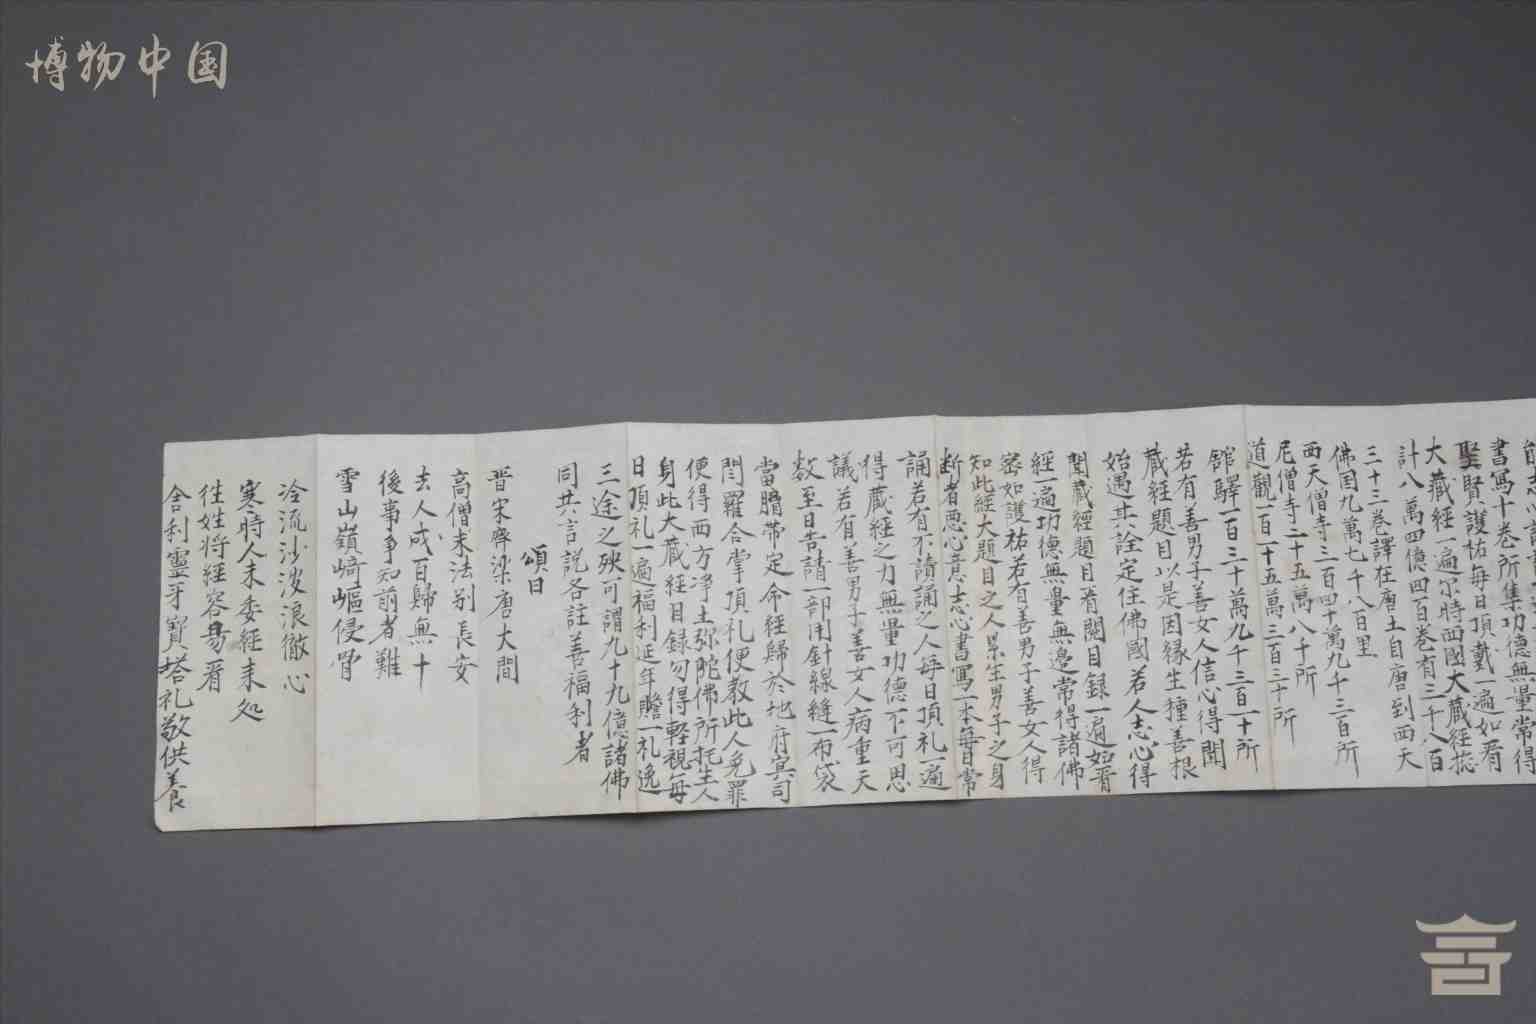 博物中国
書寫十卷所集功德無量常得
聖賢護祐每日頂戴一遍如看
大藏經一遍尔時西國大藏經捴
計八萬四億四百卷有三千八百
三十三卷譯在唐土自唐到西天
佛国九萬七千八百里
西天僧寺三百四十萬九千三百所
尼僧寺二十五萬八十所
道觀一百一十五萬三百三十所
舘驛一百三十萬九千三百一十所
若有善男子善女人信心得聞
藏經題目以是因緣生種善根
始遇其詮定住佛國若人志心得
聞藏經題目看閱目録一遍如看
經一遍功德無量無邊常得諸佛
密如護祐若有善男子善女人得
知此經大題目之人累生男子之身
断者悪心意志心書寫一本每日常
誦若有不讀誦之人每日頂礼一遍
得藏經之力無量功德不可思
議若有善男子善女人病重天
数至日告請一部用針線縫一布袋
當腊帶定命經歸於地府冥司
閆羅合掌頂礼便教此人免罪
便得西方净土弥陀佛所托生人
身此大藏經目録勿得軽視每
日頂礼一遍福利延年瞻一礼逸
三途之殃可謂九十九億諸佛
同共言説各註善福利者
頌曰
晋宋齊梁唐大間
高僧求法别長安
去人成百歸無十
後事争知前者難
雪山嶺﨑嶇侵骨
冷流沙波浪徹心
寒時人未委經来処
徃姓将經容昜看
舍利靈牙寶塔礼敬供養